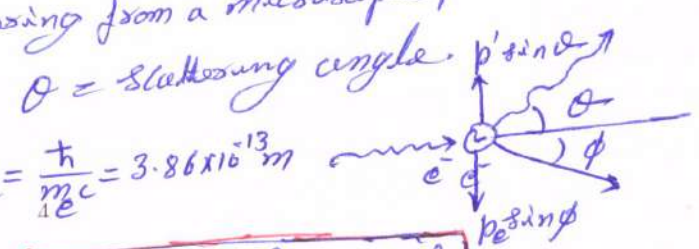 from a
θ = scattering angle.
p' sin θ
θ
= ħ/mₑc = 3.86×10⁻¹³m
e⁻ e⁻
ϕ
pₑ sin ϕ